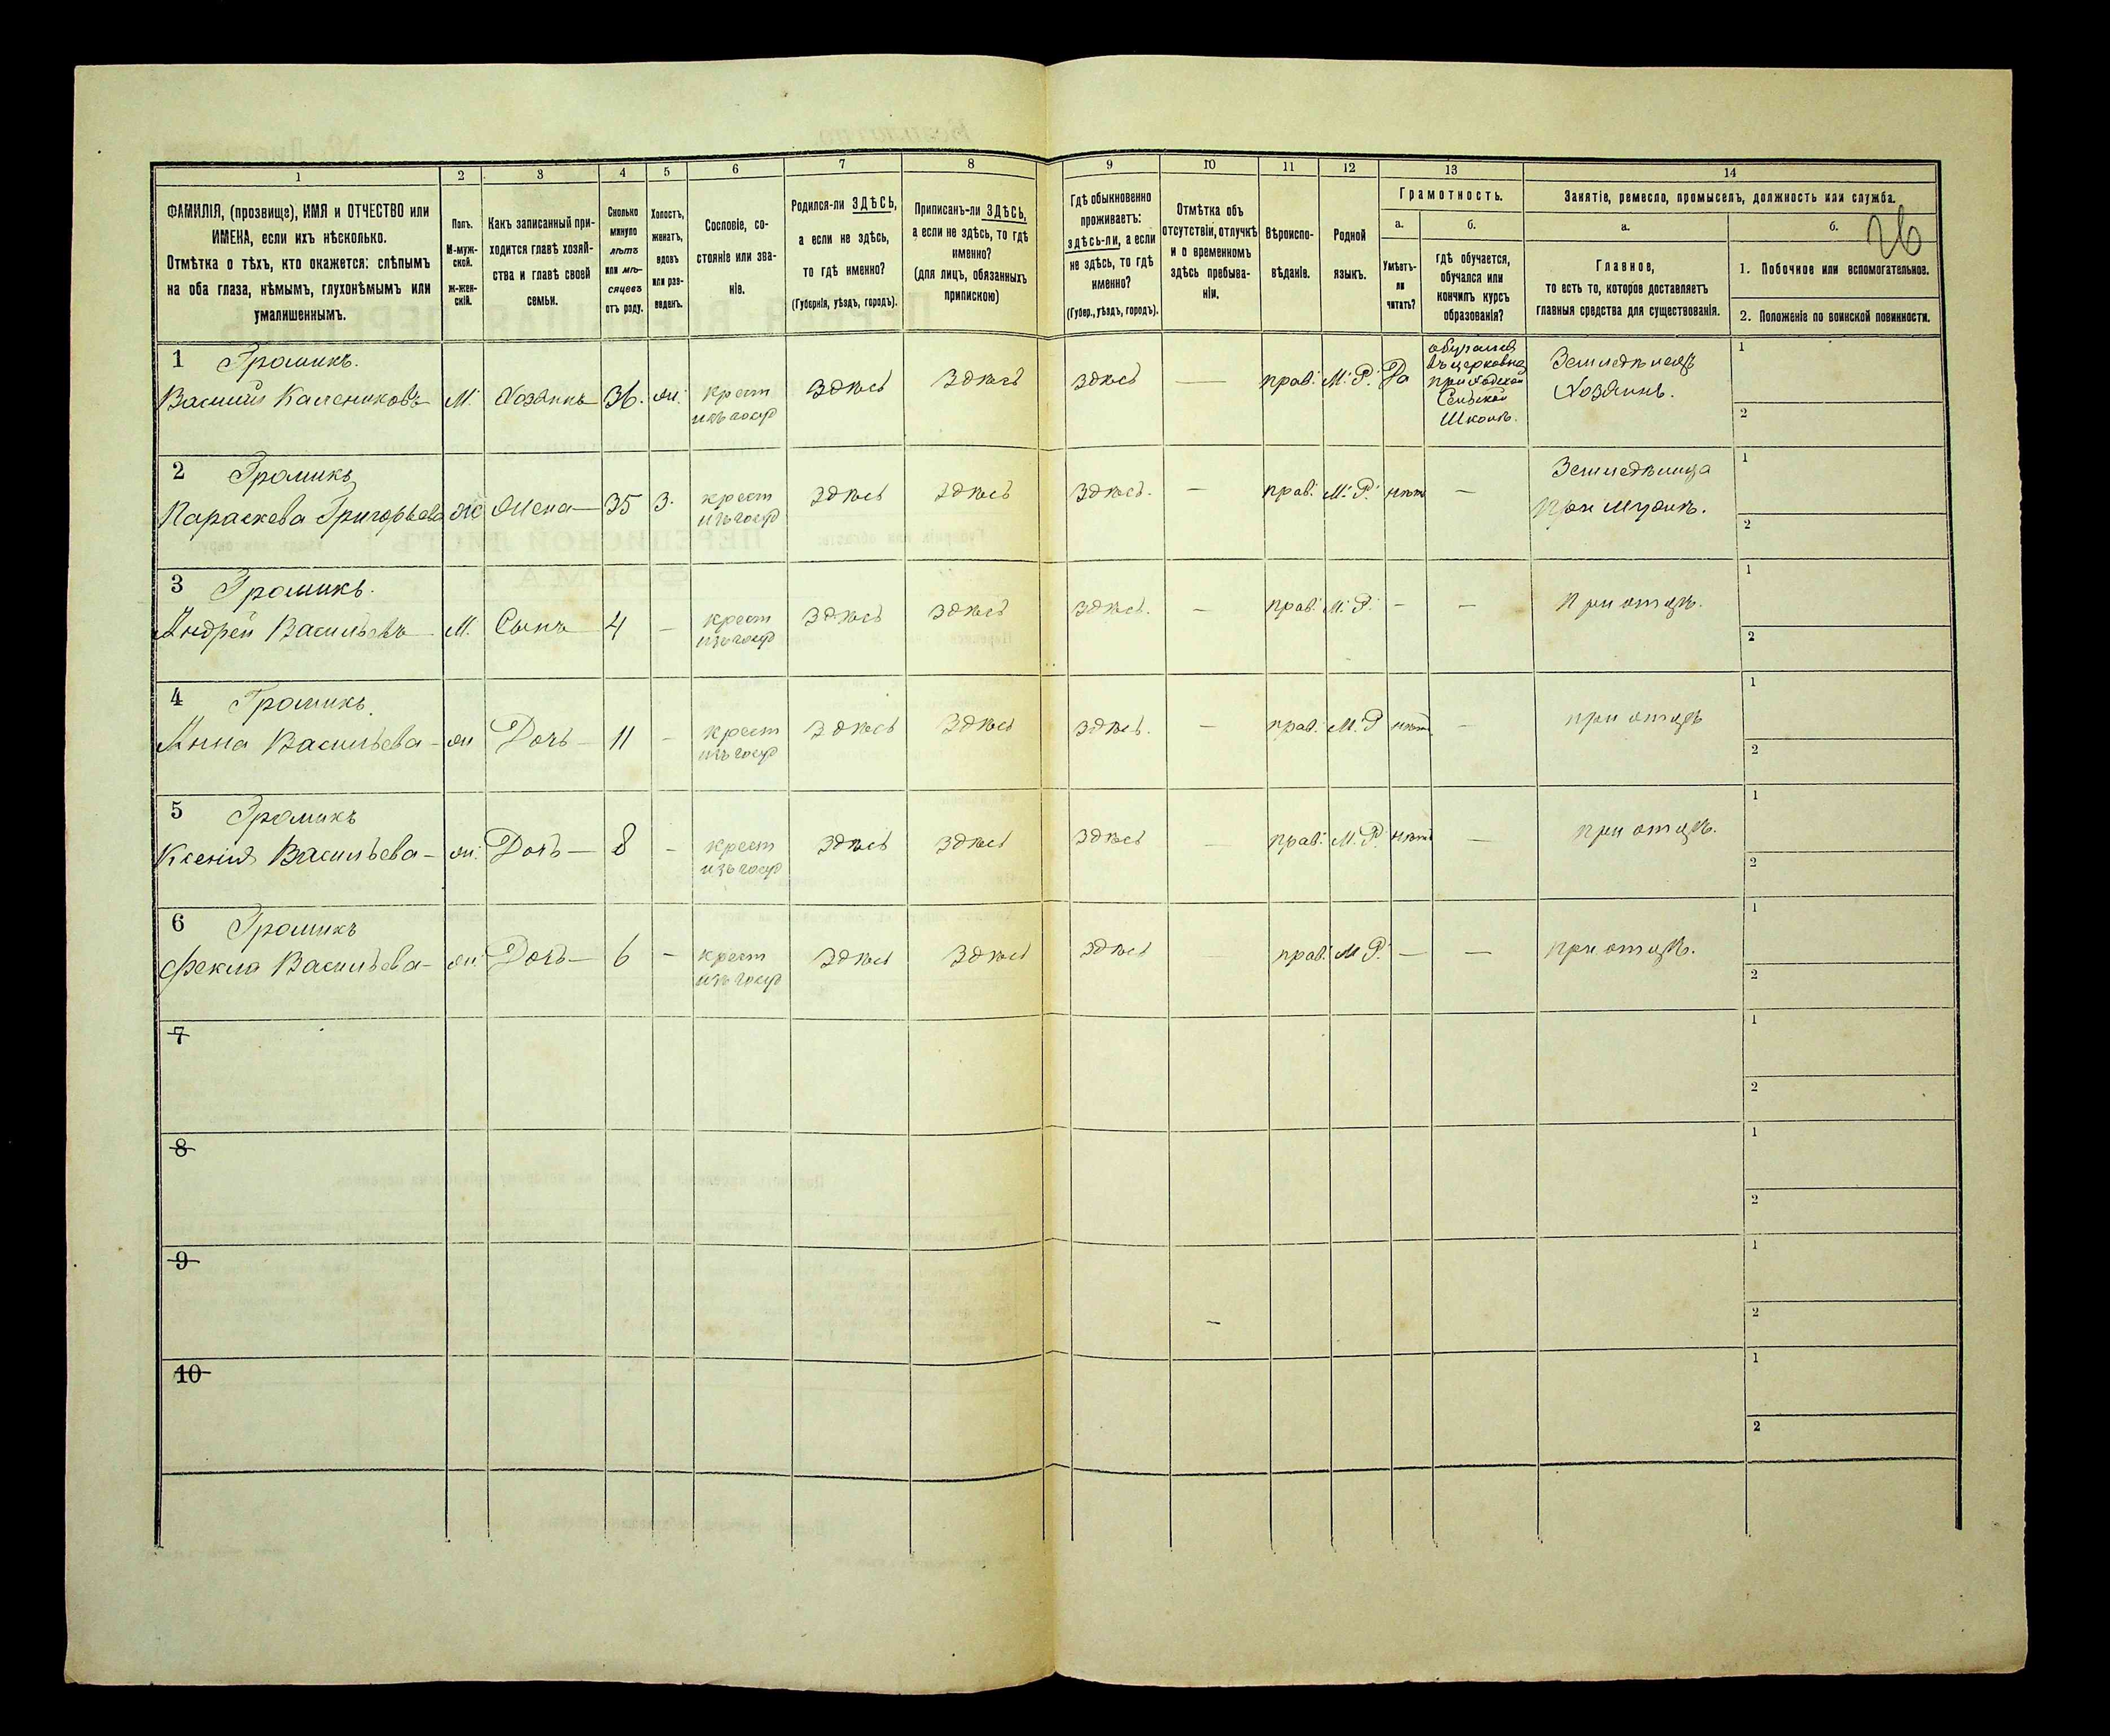 1 2 3 4 5 6 7 8 9 10 11 12 13 14
ФАМИЛІЯ, (прозвище), ИМЯ и ОТЧЕСТВО или
ИМЕНА, если ихъ нѣсколько.
Отмѣтка о тѣхъ, кто окажется: слѣпымъ
на оба глаза, нѣмымъ, глухонѣмымъ или
умалишеннымъ.
Полъ.
М-муж-
ской.
Ж-жен-
скій.
Какъ записанный при-
ходится главѣ хозяй-
ства и главѣ своей
семьи.
Сколько
минуло
лѣтъ
или мѣ-
сяцевъ
отъ роду.
Холостъ,
женатъ,
вдовъ
или раз-
веденъ.
Сословіе, со-
стояніе или зва-
ніе.
Родился-ли ЗДѢСЬ,
а если не здѣсь,
то гдѣ именно?
(Губернія, уѣздъ, городъ).
Приписанъ-ли ЗДѢСЬ,
а если не здѣсь, то гдѣ
именно?
(для лицъ, обязанныхъ
припискою)
Гдѣ обыкновенно
проживаетъ:
здѣсь-ли, а если
не здѣсь, то гдѣ
именно?
(Губер., уѣздъ, городъ).
Отмѣтка объ
отсутствіи, отлучкѣ
и о временномъ
здѣсь пребыва-
ніи.
Вѣроиспо-
вѣданіе.
Родной
языкъ.
Грамотность.
а.
Умѣетъ-
ли
читать?
б.
гдѣ обучается,
обучался или
кончилъ курсъ
образованія?
Занятіе, ремесло, промыселъ, должность или служба.
а.
Главное,
то есть то, которое доставляетъ
главныя средства для существованія.
б.
26
1. Побочное или вспомогательное.
2. Положеніе по воинской повинности.
1 Громикъ.
Василий Калениковъ М. Хозяинъ 36. ж. крест
изъ госуд
здѣсь здѣсь здѣсь — прав. М. Р. Да
обучался
въ церковно
приходской
Сельской
Школѣ.
Земледѣлецъ
Хозяинъ.
1
2
2 Громикъ
Параскева Григорьева ж Жена 35 З. крест
изъ госуд
здѣсь здѣсь здѣсь. — прав. М. Р. нѣт —
Земледѣлица
При мужѣ.
1
2
3 Громикъ.
Андрей Васильевъ М. Сынъ 4 — крест
изъ госуд
здѣсь здѣсь здѣсь. — прав. М. Р. — — При отцѣ.
1
2
4 Громикъ.
Анна Васильева ж Дочь 11 — крест
изъ госуд
здѣсь здѣсь здѣсь. — прав. М. Р нѣт — при отцѣ
1
2
5 Громикъ
Ксенія Васильева ж. Дочь 8 — крест
изъ госуд
здѣсь здѣсь здѣсь — прав. М. Р. нѣт — При отцѣ.
1
2
6 Громикъ
Фекла Васильева ж Дочь 6 — крест
изъ госуд
здѣсь здѣсь здѣсь прав. М Р. — — при отцѣ.
1
2
7
1
2
8
1
2
9
1
2
10
1
2